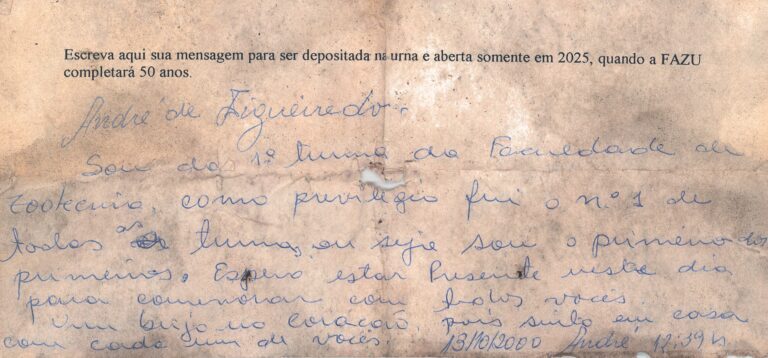 Escreva aqui sua mensagem para ser depositada na urna e aberta somente em 2025, quando a FAZU
completará 50 anos.
André de Figueiredo
Sou das 1ª turma da Faculdade de
Zootecnia, como previlégio fui o nº 1 de
todas as turma, ou seje sou o primeiro dos
primeiros. Espero estar Presente neste dia
para comemorar com todos vocês.
Um beijo no coração, pois sinto em casa
com cada um de vocês. 13/10/2000 André 12:39 h